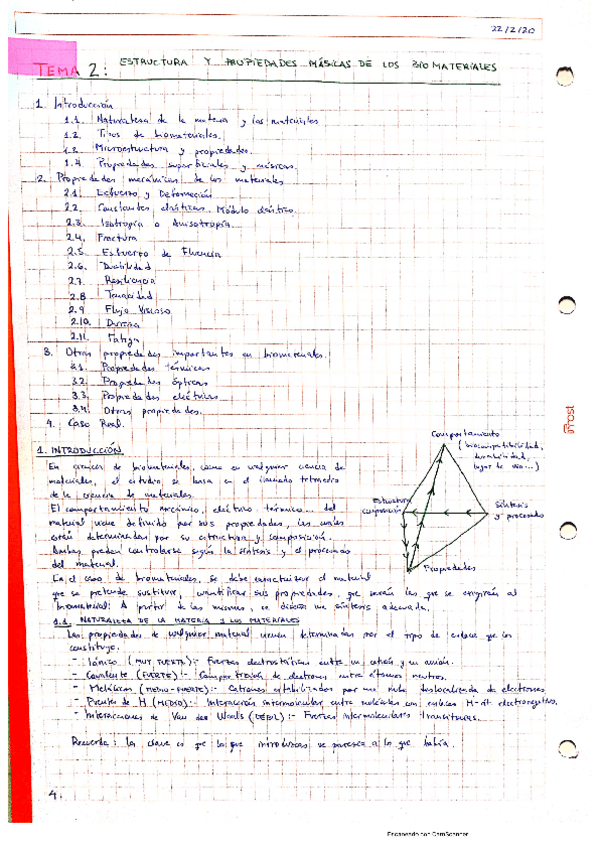 22/2/20
TEMA 2: ESTRUCTURA Y PROPIEDADES MÁSICAS DE LOS BIOMATERIALES
1. Introducción
1.1. Naturaleza de la materia y los materiales
1.2. Tipos de biomateriales.
1.3. Microestructura y propiedades.
1.4. Propiedades superficiales y másicas.
2. Propiedades mecánicas de los materiales
2.1. Esfuerzo y Deformación
2.2. Constantes elásticas. Módulo elástico.
2.3. Isotropía o Anisotropía.
2.4. Fractura
2.5. Esfuerzo de Fluencia
2.6. Ductilidad
2.7. Resiliencia
2.8 Tenacidad
2.9 Flujo Viscoso
2.10. Dureza
2.11. Fatiga
3. Otras propiedades importantes en biomateriales.
3.1. Propiedades térmicas
3.2. Propiedades ópticas
3.3. Propiedades eléctricas
3.4. Otras propiedades.
4. Caso Real.
1. INTRODUCCIÓN
En ciencias de biomateriales, como en cualquier ciencia de
materiales, el estudio se basa en el llamado tetraedro
de la ciencia de materiales.
El comportamiento mecánico, eléctrico, térmico... del
material viene definido por sus propiedades, las cuales
están determinadas por su estructura y composición.
Ambas pueden controlarse según la síntesis y el procesado
del material.
En el caso de biomateriales, se debe caracterizar el material
que se pretende sustituir, cuantificar sus propiedades, que serán las que se exigirán al
biomaterial. A partir de las mismas, se diseña una síntesis adecuada.
Comportamiento
(biocompatibilidad,
durabilidad,
lugar de uso...)
Estructura
composición
Síntesis
y procesado
Propiedades
1.1. NATURALEZA DE LA MATERIA Y LOS MATERIALES
Las propiedades de cualquier material vienen determinadas por el tipo de enlace que los
constituye.
- Iónico (MUY FUERTE):- Fuerzas electrostáticas entre un catión y un anión.
- Covalente (FUERTE):- Compartición de electrones entre átomos neutros.
- Metálicos (MEDIO-FUERTE):- Cationes estabilizados por una nube deslocalizada de electrones
- Puentes de H (MEDIO):- Interacción intermolecular entre moléculas con enlaces H-át. electronegativos
- Interacciones de Van der Waals (DÉBIL):- Fuerzas intermoleculares transitorias.
Recuerda: la clave es que lo que introduzcas se parezca a lo que había.
4.
Frost
Escaneado con CamScanner